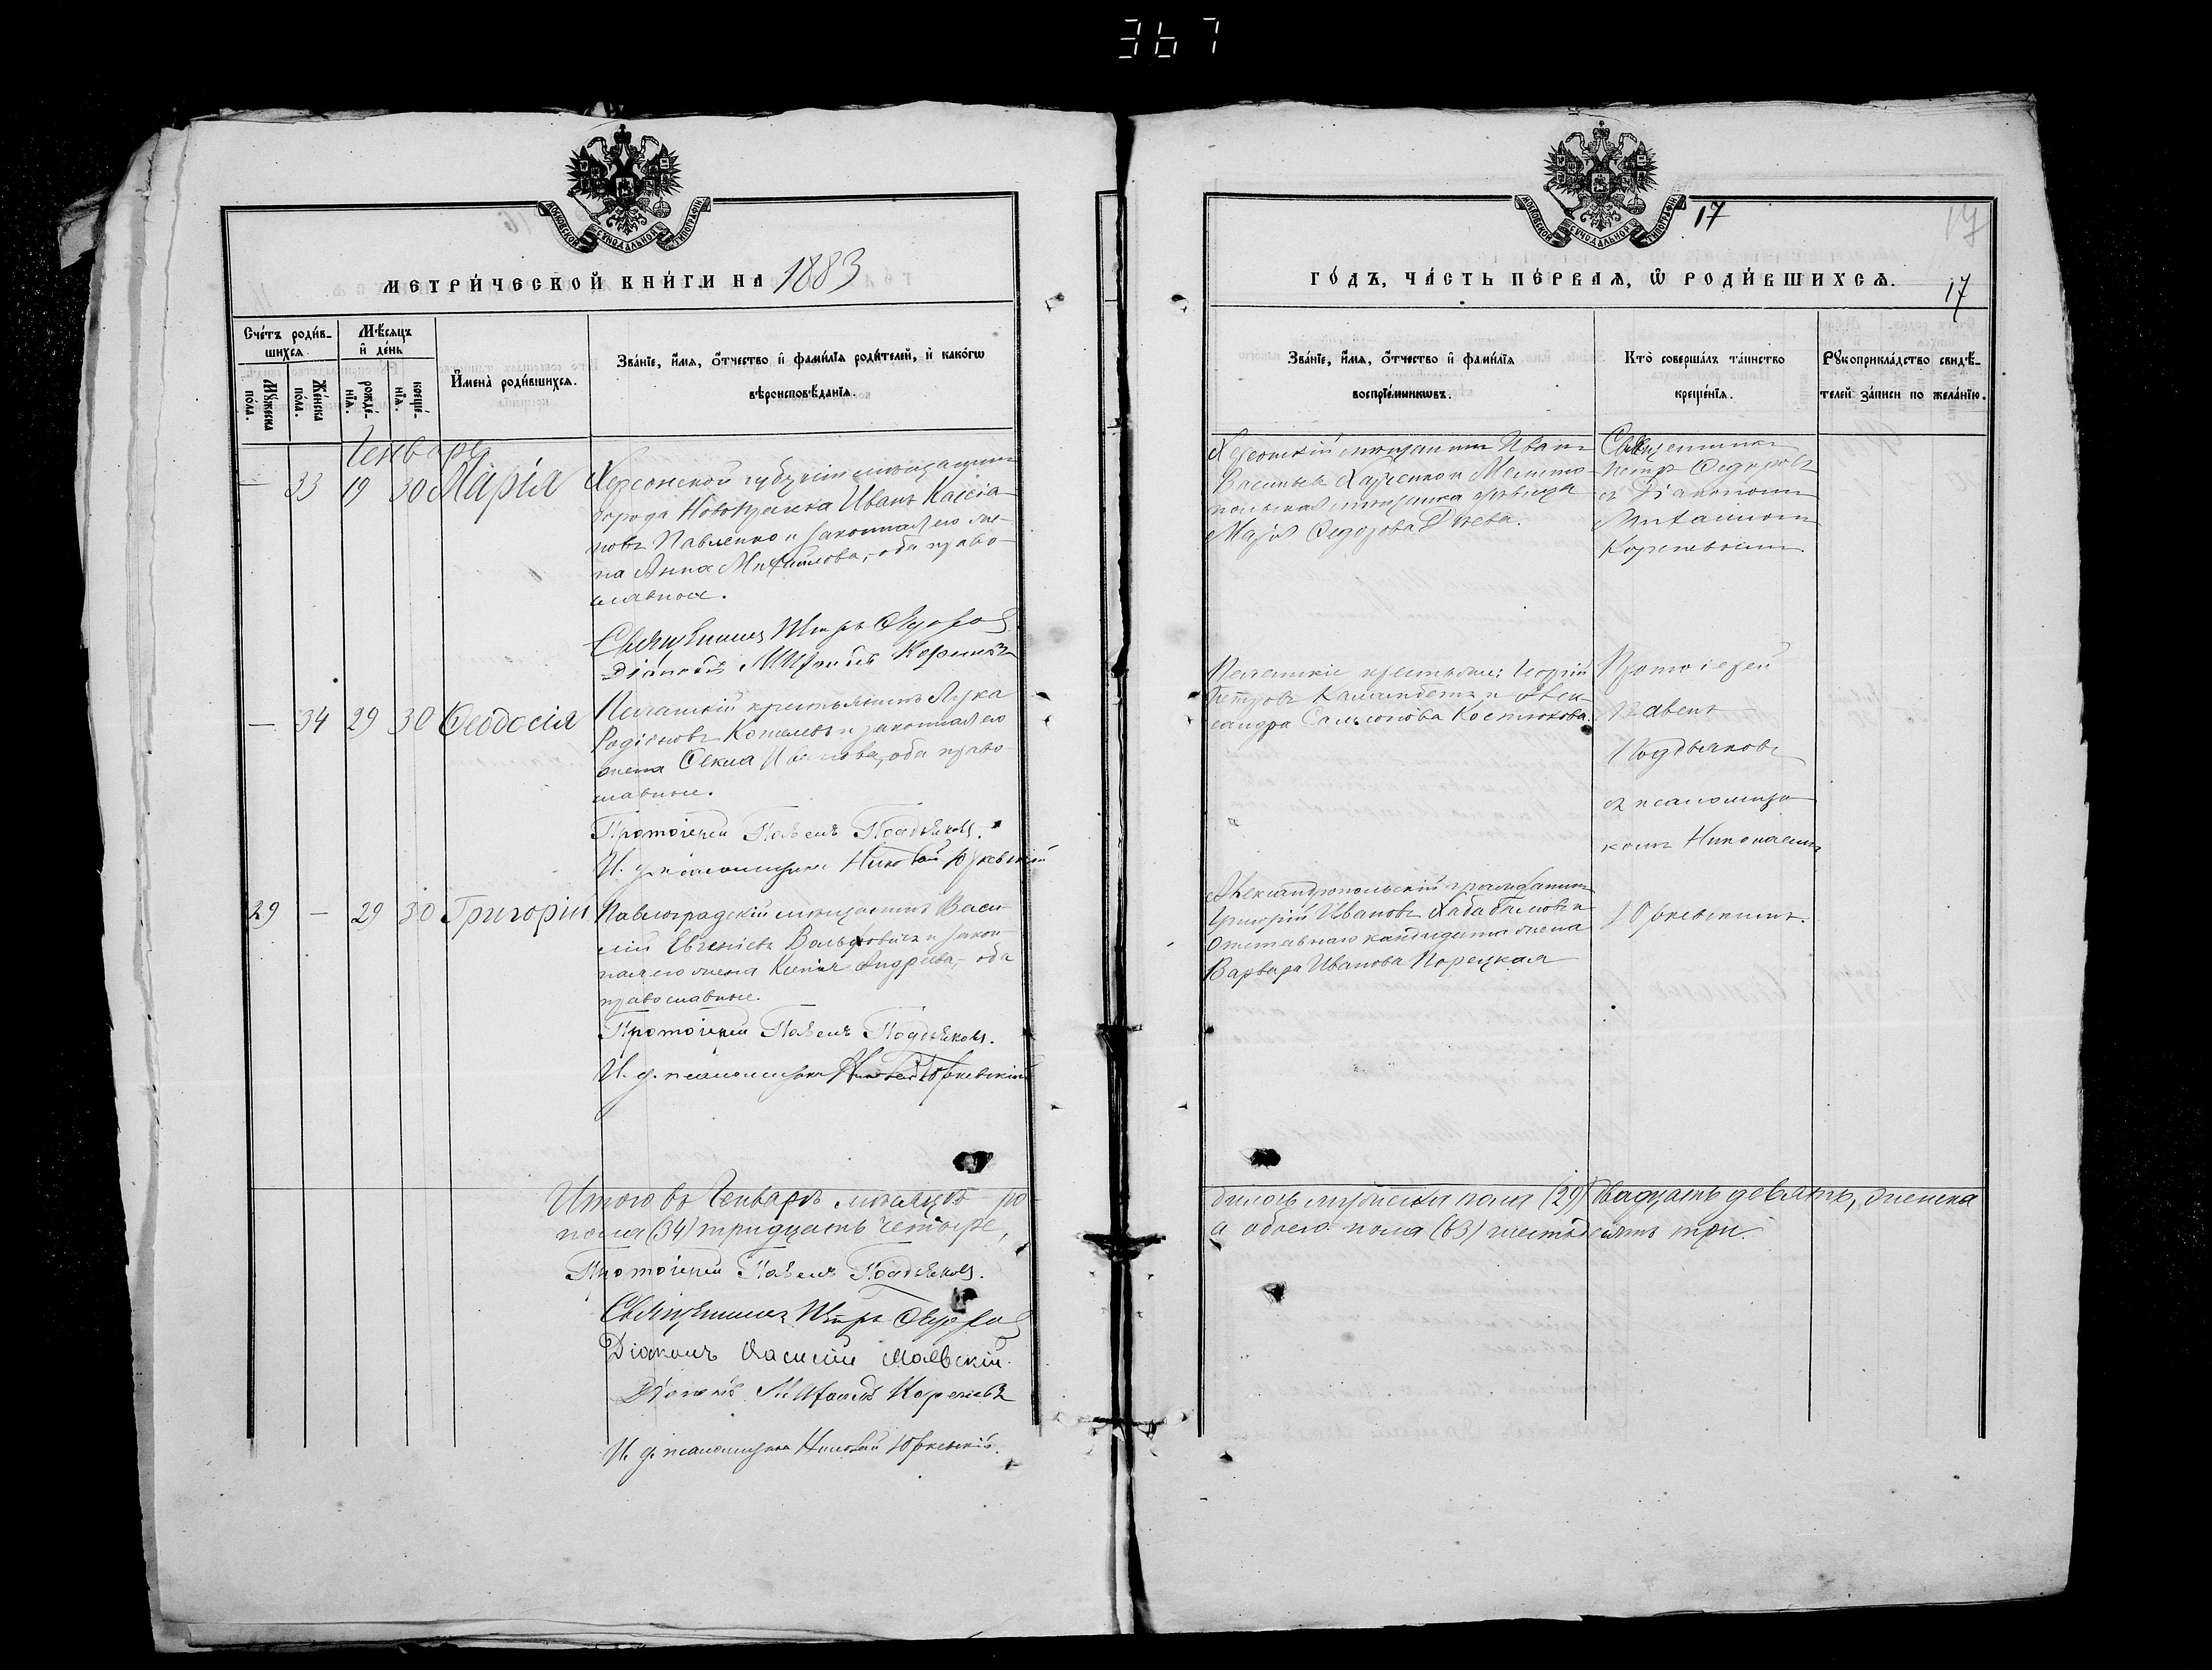 367
МОСКОВСКОЙ СУНОДАЛЬНОЙ ТИПОГРАФІИ
МЕТРИ́ЧЕСКОЙ КНИ́ГИ НА 1883
Сче́тъ роди́в-
шихся
Мѣ́сяцъ
и҆ де́нь
Мꙋ́жеска
по́ла.
Же́нска
по́ла.
рожде́-
нїѧ.
креще́-
нїѧ.
И҆мена̀ роди́вшихсѧ.
Зва́нїе, и҆́мѧ, ѻ҆́тчество и҆ фами́лїѧ роди́телей, и҆ како́гѡ
вѣроисповѣ́данїѧ.
Генварь
— 33 19 30 Марія
Херсонской губерніи мѣщанинъ
города Новопраска Иванъ Кассіа-
новъ Павленко и законная его же-
на Анна Михаилова, оба право-
славные.
Священникъ Петръ Ѳедоров
Діаконъ Михаилъ Кореневъ
— 34 29 30 Ѳеодосія
крестьянинъ Лука
Родіоновъ и законная его
жена Ѳекла Иванова, оба право-
славные.
Протоіерей Павелъ Поддьяковъ.
И. д. псаломщика Николай Юркевскій
29 — 29 30 Григорій
Павлоградскій мѣщанинъ Васи-
лій Евгеніевъ и закон-
ная его жена Андреева, оба
православные.
Протоіерей Павелъ Поддьяковъ.
И. д. псаломщика Николай Юркевскій
Итого въ Генварѣ мѣсяцѣ ро
пола (34) тридцать четыре,
Протоіерей Павелъ Поддьяковъ.
Священникъ Петръ Ѳедоров
Діаконъ Василій Маевскій.
Діаконъ Михаилъ Кореневъ
И. д. псаломщика Николай Юркевскій.
МОСКОВСКОЙ СУНОДАЛЬНОЙ ТИПОГРАФІИ
17
17
ГО́ДЪ, ЧА́СТЬ ПЕ́РВАѦ, Ѡ҆ РОДИ́ВШИХСѦ.
17
Зва́нїе, и҆́мѧ, ѻ҆́тчество и҆ фами́лїѧ
воспрїе́мникѡвъ.
Кто̀ соверша́лъ та́инство
креще́нїѧ.
Рꙋкоприкла́дство свидѣ́-
телей за́писи по жела́нїю.
Херсонскій мѣщанинъ Иванъ
Васильевъ Харченко и Мелито-
польская мѣщанка дѣвица
Марія Ѳедорова
Священникъ
Петръ Ѳедоровъ
съ Діакономъ
Михаиломъ
Кореневымъ.
крестьяне: Георгій
Петровъ и Алек-
сандра Самсонова Костюкова.
Протоіерей
Павелъ
Поддьяковъ
съ псаломщи-
комъ Николаемъ
Юркевскимъ.
Александропольскій гражданинъ
Григорій Ивановъ и
отставнаго кандидата жена
Варвара Иванова Порецкая
дилось мужеска пола (29) двадцать девять, женска
а обоего пола (63) шестьдесятъ три.